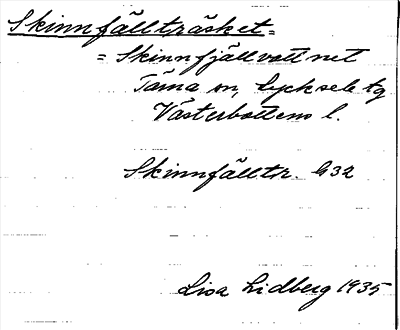 Skinnfällträsket=
= Skinnfjällvattnet
Tärna sn, Lycksele tg
Västerbottens l.
Skinnfälltr. G32
Lisa Lidberg 1935